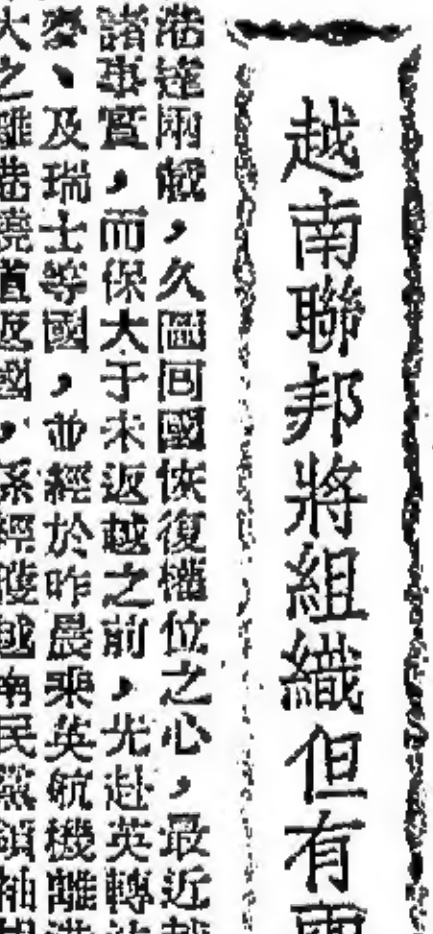 越南聯邦將組織但有
港達兩載，久圖囘國恢復權位之心，最近
諸事實，而保大于未返越之前，光赴英轉
麥、及瑞士等國，並經於昨晨乘英航機離港
大之離港繞道返國，係經獲越南民黨領袖